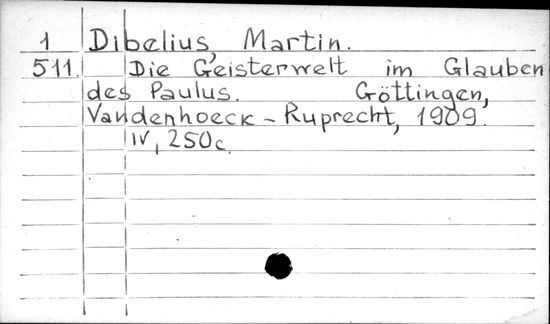 1 Dibelius, Martin.
511. Die Geisterwelt im Glauben
des Paulus. Göttingen,
Vandenhoeck - Ruprecht, 1909.
IV, 250c.